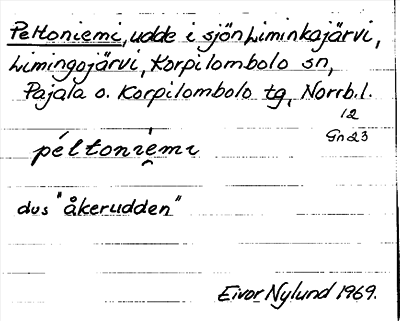 Peltoniemi, udde i sjön Liminkajärvi,
Limingojärvi, Korpilombolo sn,
Pajala o. Korpilombolo tg, Norrb.l.
12
Gn23
péltoniemi
dvs "åkerudden"
Eivor Nylund 1969.